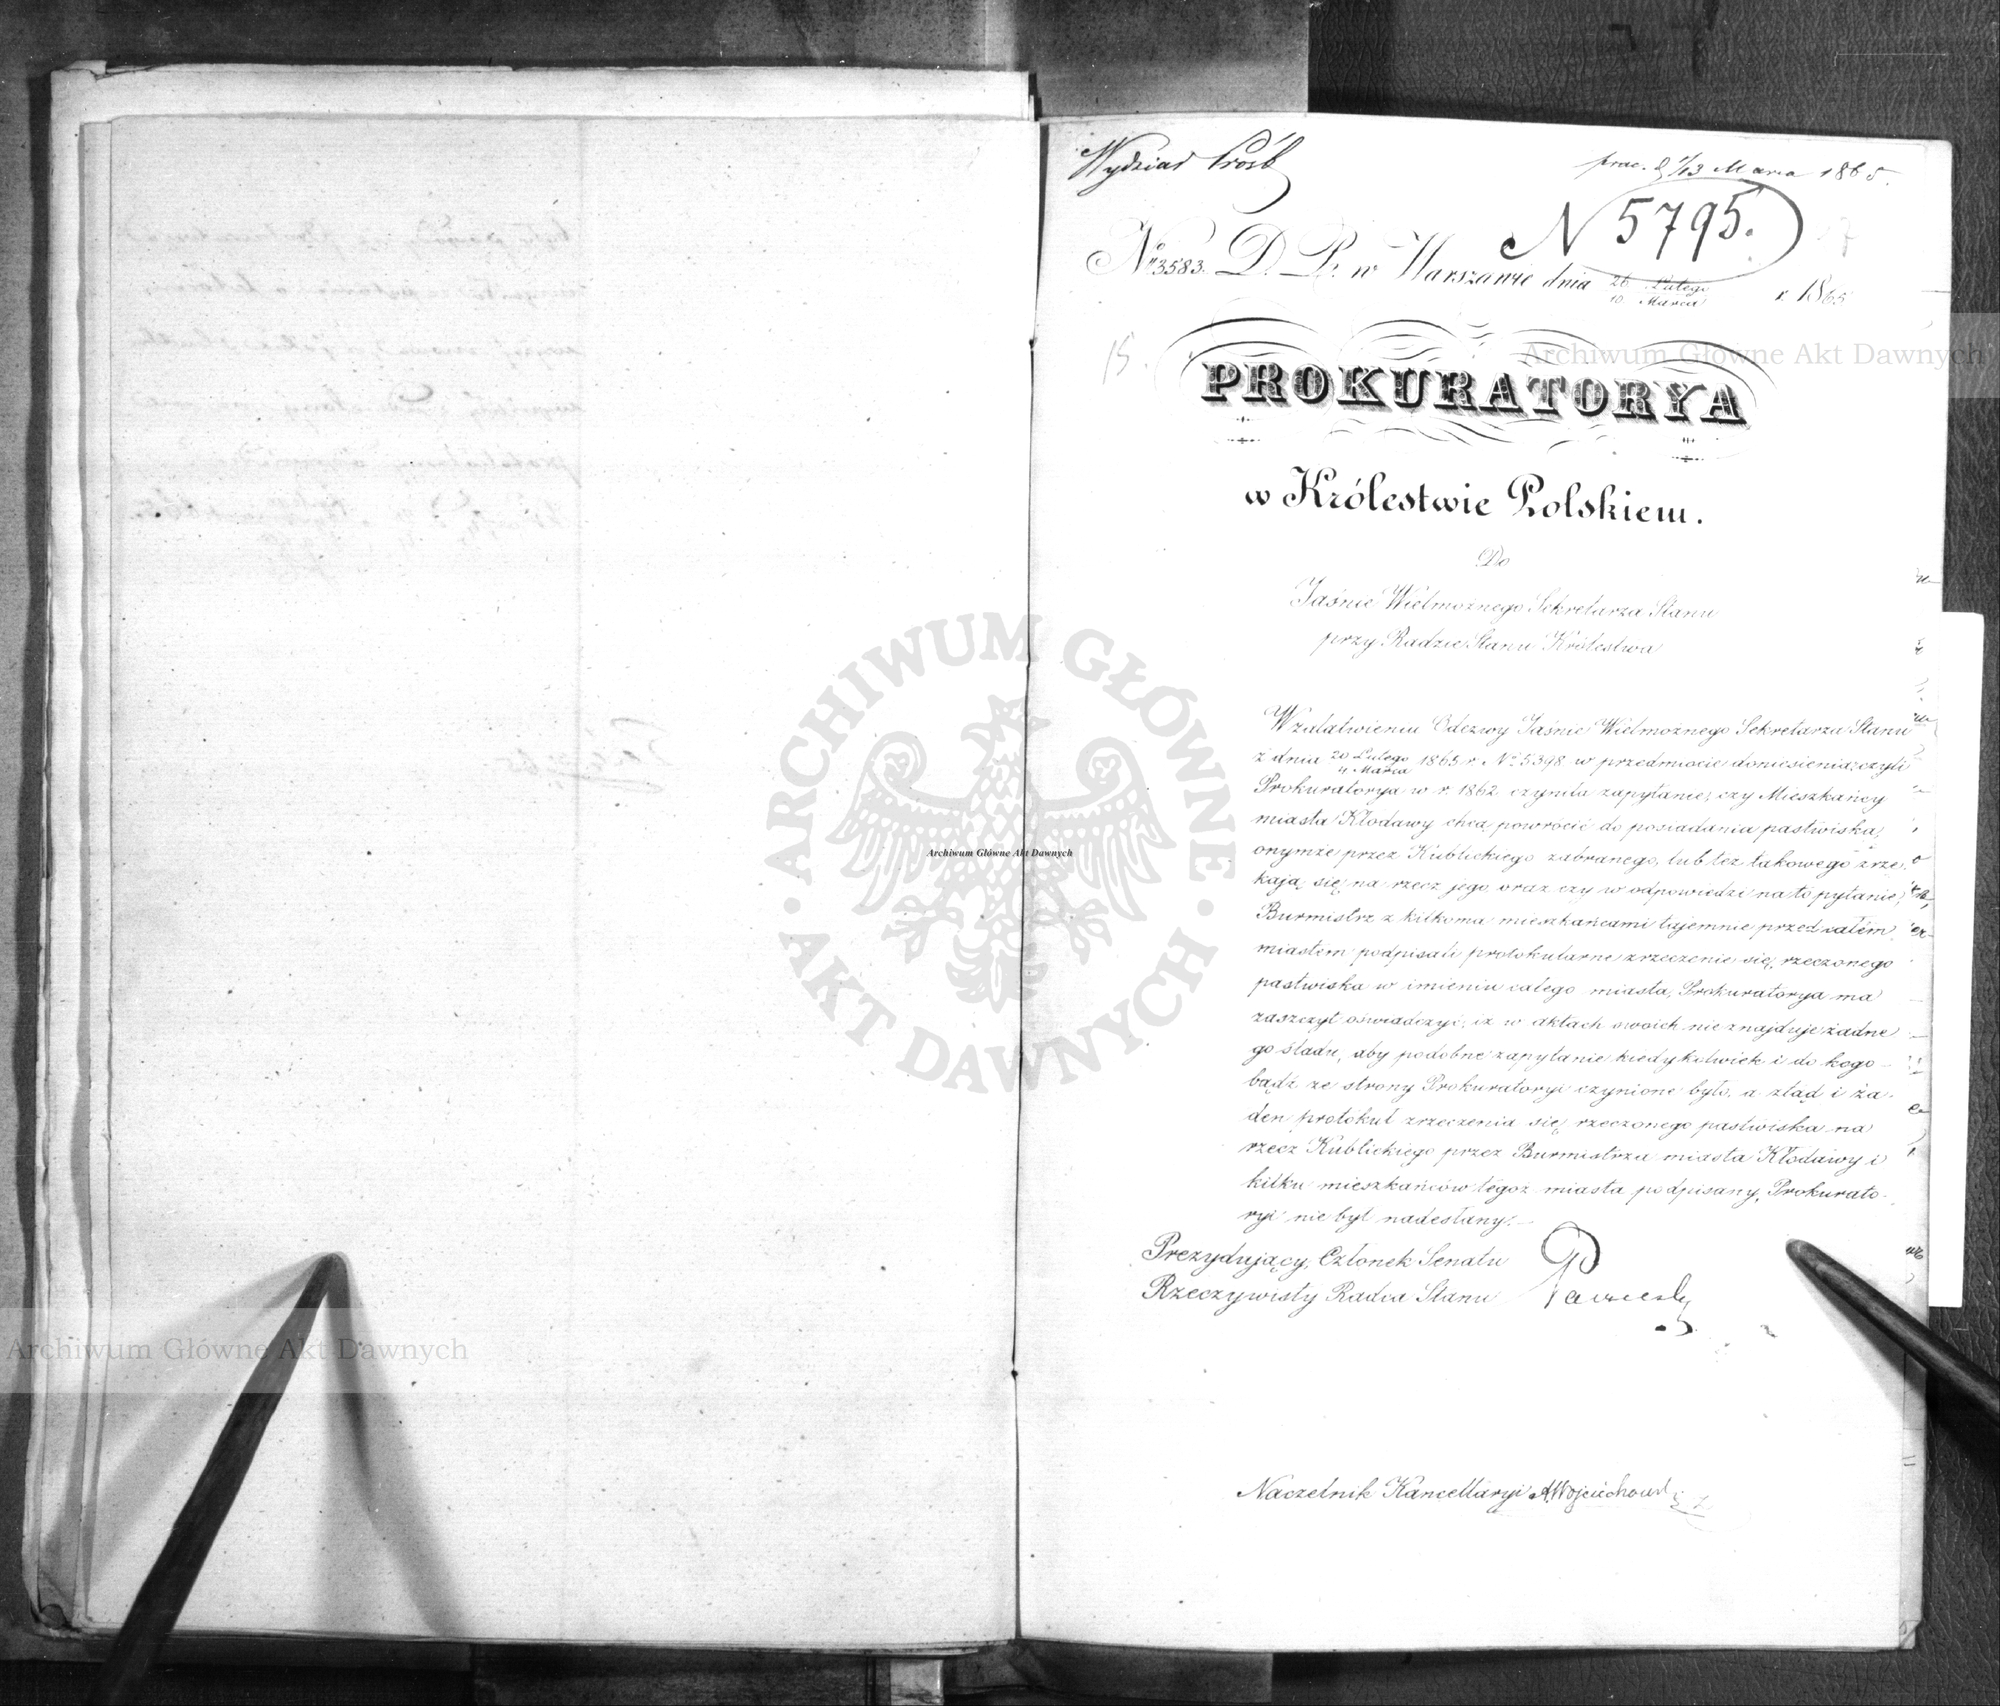 Wydział Próśb
prac. d. 1/13 Marca 1865.
N 5795.
№ 3583. D. P. w Warszawie dnia 26 Lutego / 10 Marca r. 1865
15.
PROKURATORYA
w Królestwie Polskiem.
Do
Jaśnie Wielmożnego Sekretarza Stanu
przy Radzie Stanu Królestwa
W załatwieniu Odezwy Jaśnie Wielmożnego Sekretarza Stanu
z dnia 20 Lutego / 4 Marca 1865 r. № 5398 w przedmiocie doniesienia: czyli
Prokuratorya w r. 1862 czyniła zapytanie, czy Mieszkańcy
miasta Kłodawy chcą powrócić do posiadania pastwiska,
onymże przez Kublickiego zabranego, lub też takowego zrze-
kają się na rzecz jego, oraz czy w odpowiedzi na to pytanie,
Burmistrz z kilkoma mieszkańcami tajemnie przed całém
miastem podpisali protokularne zrzeczenie się rzeczonego
pastwiska w imieniu całego miasta, Prokuratorya ma
zaszczyt oświadczyć, iż w aktach swoich nie znajduje żadne
go śladu, aby podobne zapytanie kiedykolwiek i do kogo-
bądź ze strony Prokuratoryi czynione było, a ztąd i ża-
den protokuł zrzeczenia się rzeczonego pastwiska na
rzecz Kublickiego przez Burmistrza miasta Kłodawy i
kilku mieszkańców tegoż miasta podpisany, Prokurato-
ryi nie był nadesłany.
Prezydujący, Członek Senatu
Rzeczywisty Radca Stanu
Naczelnik Kancellaryi AWojciechowski
Archiwum Główne Akt Dawnych
ARCHIWUM GŁÓWNE AKT DAWNYCH
Archiwum Główne Akt Dawnych
Archiwum Główne Akt Dawnych